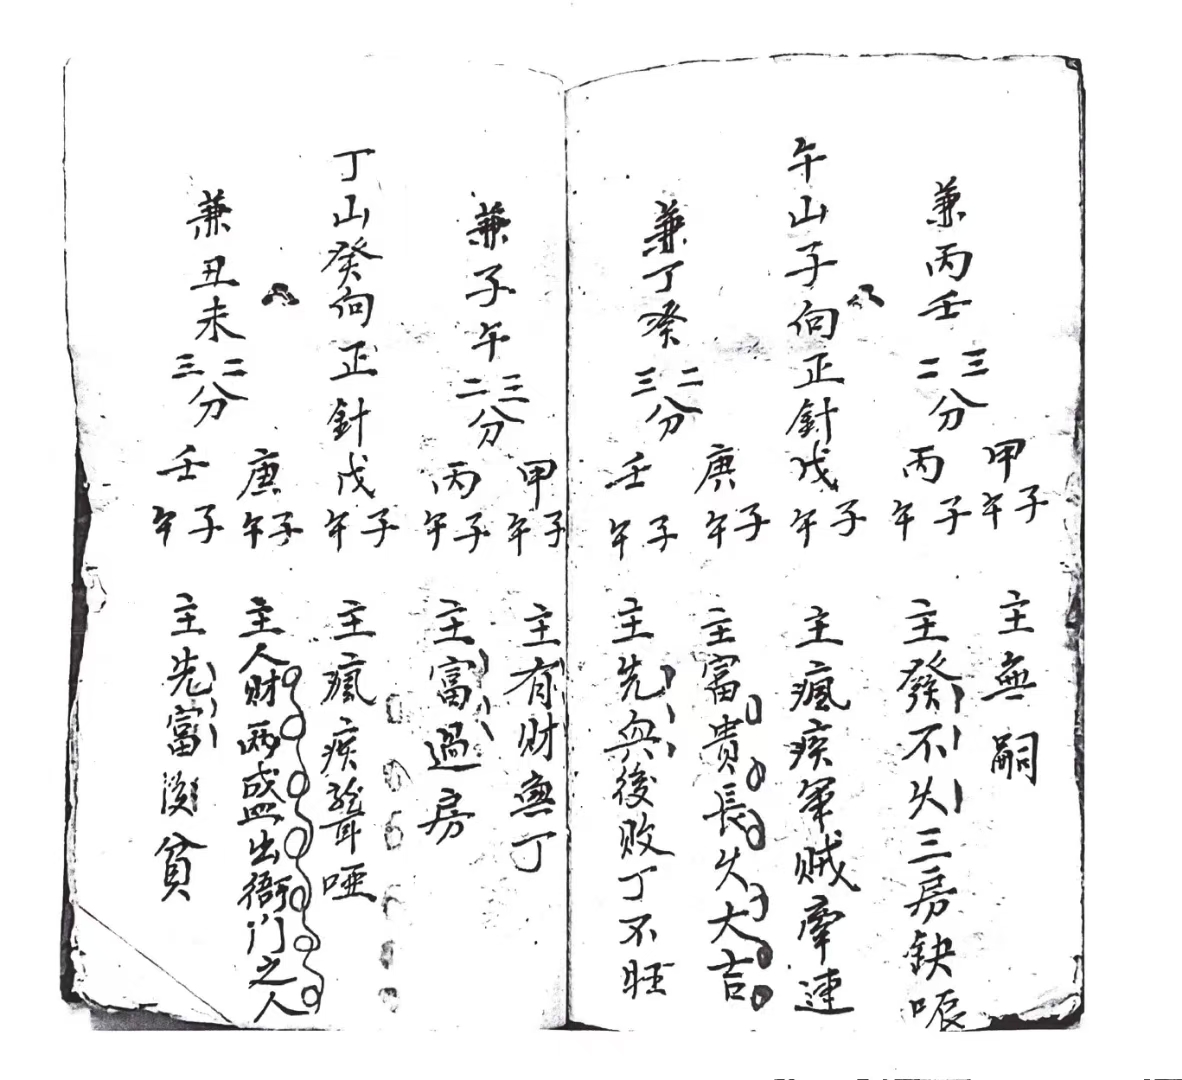 甲子午 主無嗣
兼丙壬三二分 丙子午 主發不久三房缺唇
午山子向正針戊子午 主瘋疾軍賊牽連
庚子午 主富貴長久大吉
兼丁癸二三分 壬子午 主先興後敗丁不旺
甲子午 主有財無丁
兼子午三二分 丙子午 主富過房
丁山癸向正針戊子午 主瘋疾聾啞
庚子午 主人財兩盛出衙門之人
兼丑未二三分 壬子午 主先富後貧